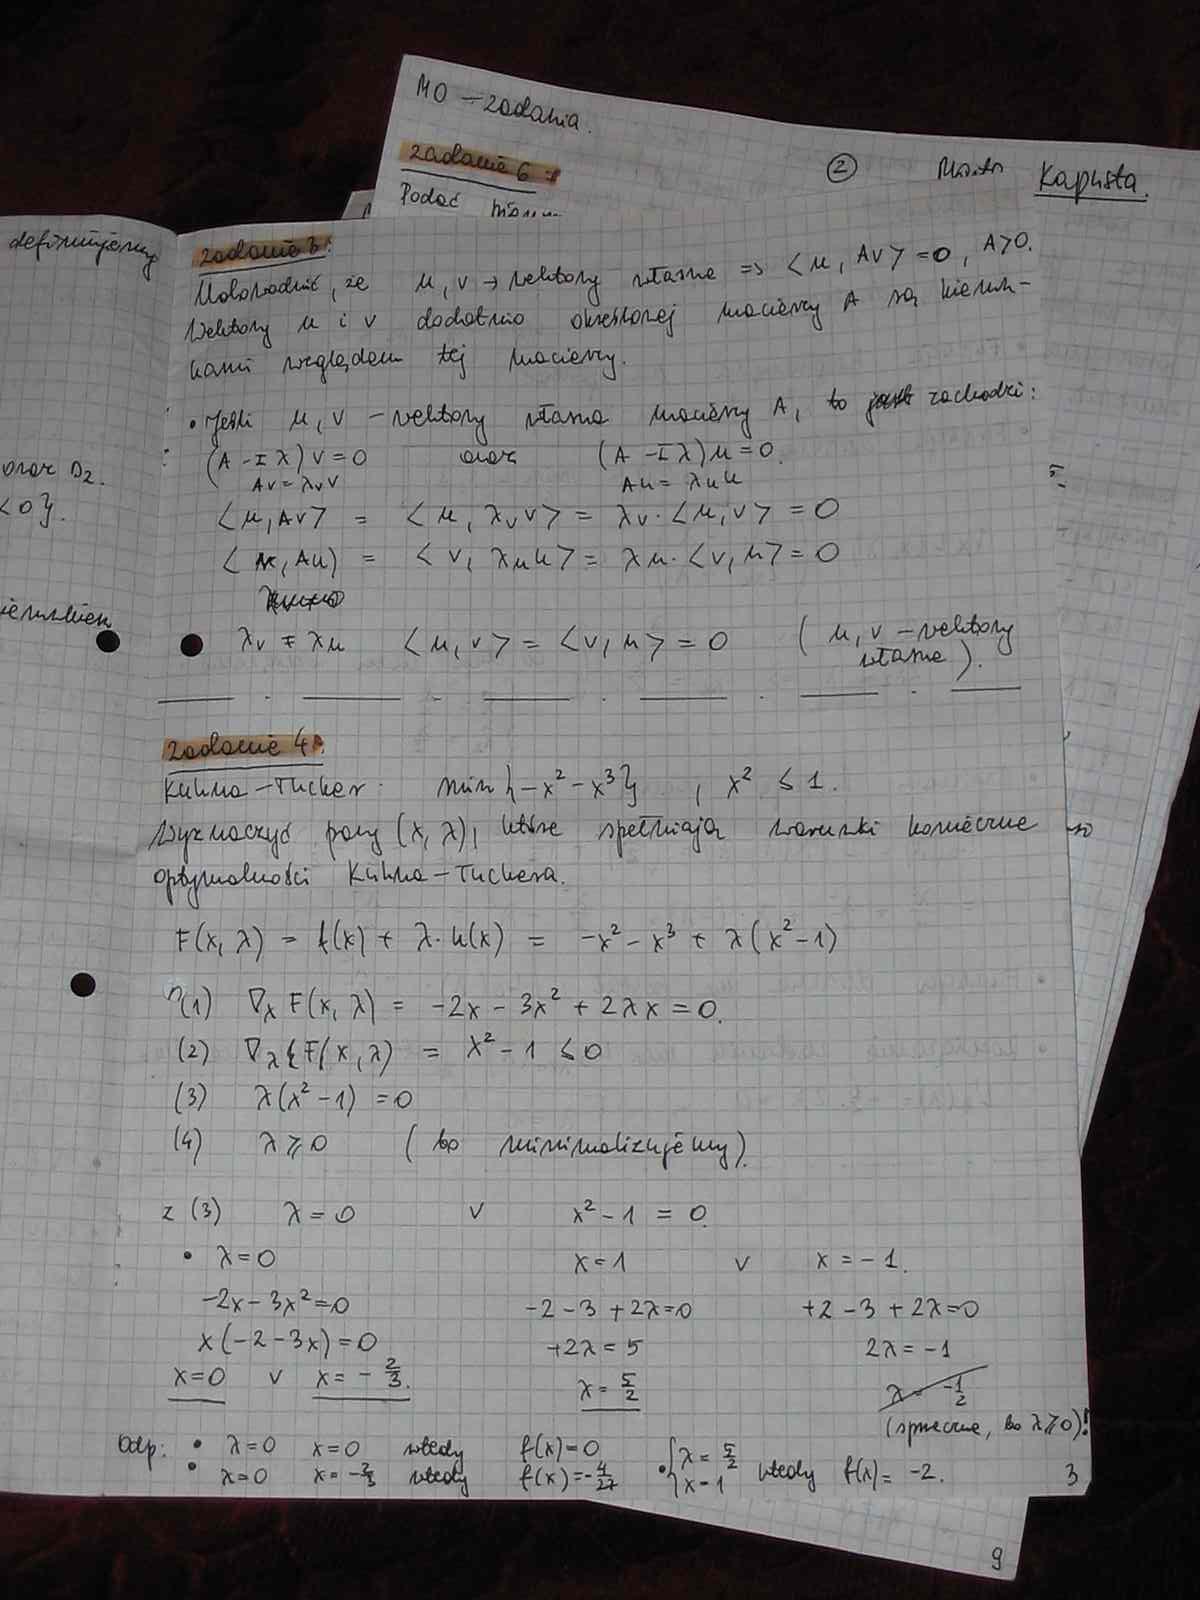 MO - zadania.
zadanie 6
② Kapusta.
Podać
definiujemy
oraz D₂.
< 0}.
zadanie 3:
Udowodnić, że u, v → wektory własne => <u, Av> = 0, A>0.
Wektory u i v dodatnio określonej macierzy A są kierun-
kami względem tej macierzy.
• Jeśli u, v - wektory własne macierzy A, to zachodzi:
(A - Iλ) v = 0 oraz (A - Iλ) u = 0.
Av = λᵥv Au = λᵤu
<u, Av> = <u, λᵥv> = λᵥ·<u, v> = 0
< , Au) = <v, λᵤu> = λᵤ·<v, u> = 0
λᵥ ≠ λᵤ <u, v> = <v, u> = 0 (u, v - wektory
własne).
zadanie 4:
Kuhna-Tucker: min {-x² - x³} , x² ≤ 1.
Wyznaczyć pary (x, λ), które spełniają warunki konieczne
optymalności Kuhna-Tuckera.
F(x, λ) = f(x) + λ·h(x) = -x² - x³ + λ(x² - 1)
(1) ∇ₓ F(x, λ) = -2x - 3x² + 2λx = 0.
(2) ∇λ F(x, λ) = x² - 1 ≤ 0
(3) λ(x² - 1) = 0
(4) λ ≥ 0 (bo minimalizujemy).
z (3) λ = 0 v x² - 1 = 0.
• λ = 0 x = 1 v x = -1.
-2x - 3x² = 0 -2 - 3 + 2λ = 0 +2 - 3 + 2λ = 0
x(-2 - 3x) = 0 +2λ = 5 2λ = -1
x = 0 v x = -2/3. λ = 5/2 λ = -1/2
(sprzeczne, bo λ ≥ 0)!
Odp: • λ = 0 x = 0 wtedy f(x) = 0
• λ = 0 x = -2/3 wtedy f(x) = -4/27 • { λ = 5/2 x = 1 wtedy f(x) = -2.
3
9